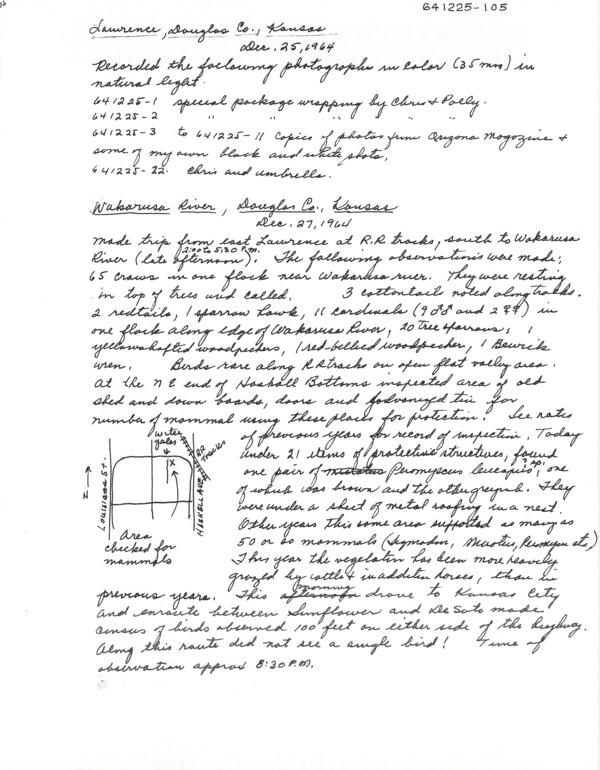 641225-105
Lawrence, Douglas Co., Kansas
Dec. 25, 1964
Recorded the following photographs in color (35 mm) in
natural light.
641225-1 special package wrapping by Chris & Polly.
641225-2 " " " " " "
641225-3 to 641225-11 Copies of photos from Arizona Magazine &
some of my own black and white shots.
641225-22. Chris and umbrella.
Wakarusa River, Douglas Co., Kansas
Dec. 27, 1964
Made trip from east Lawrence at R.R tracks, south to Wakarusa
2:00 to 5:30 P.M.
River (late afternoon). The following observations were made:
65 crows in one flock near Wakarusa river. They were resting
in top of trees and called. 3 cottontail noted along tracks.
2 redtails, 1 sparrow hawk, 11 cardinals (9 ♂♂ and 2 ♀♀) in
one flock along edge of Wakarusa River, 20 tree sparrows; 1
yellowshafted woodpeckers, 1 red-bellied woodpecker, 1 Bewick
wren. Birds rare along RR tracks on open flat valley area.
At the N E end of Haskell Bottoms inspected area of old
shed and down boards, doors and galvanized tin for
number of mammal using these places for protection. See notes
of previous years for record of inspection. Today
under 21 items of protective structures, found
one pair of Peromyscus leucopus, one
of which was brown and the other greyish. They
were under a sheet of metal roofing in a nest.
Other years this same area supported as many as
50 or 60 mammals (Sigmodon, Microtus, Peromyscus etc)
This year the vegetation has been more heavily
grazed by cattle & in addition horses, than in
previous years. This afternoon drove to Kansas City
morning
and enroute between Sunflower and De Soto made
census of birds observed 100 feet on either side of the highway.
Along this route did not see a single bird! Time of
observation approx 8:30 P.M.
water
gates
X
RR TRACKS
N
LOUISIANA St.
HASKELL AVE
Area
checked for
mammals